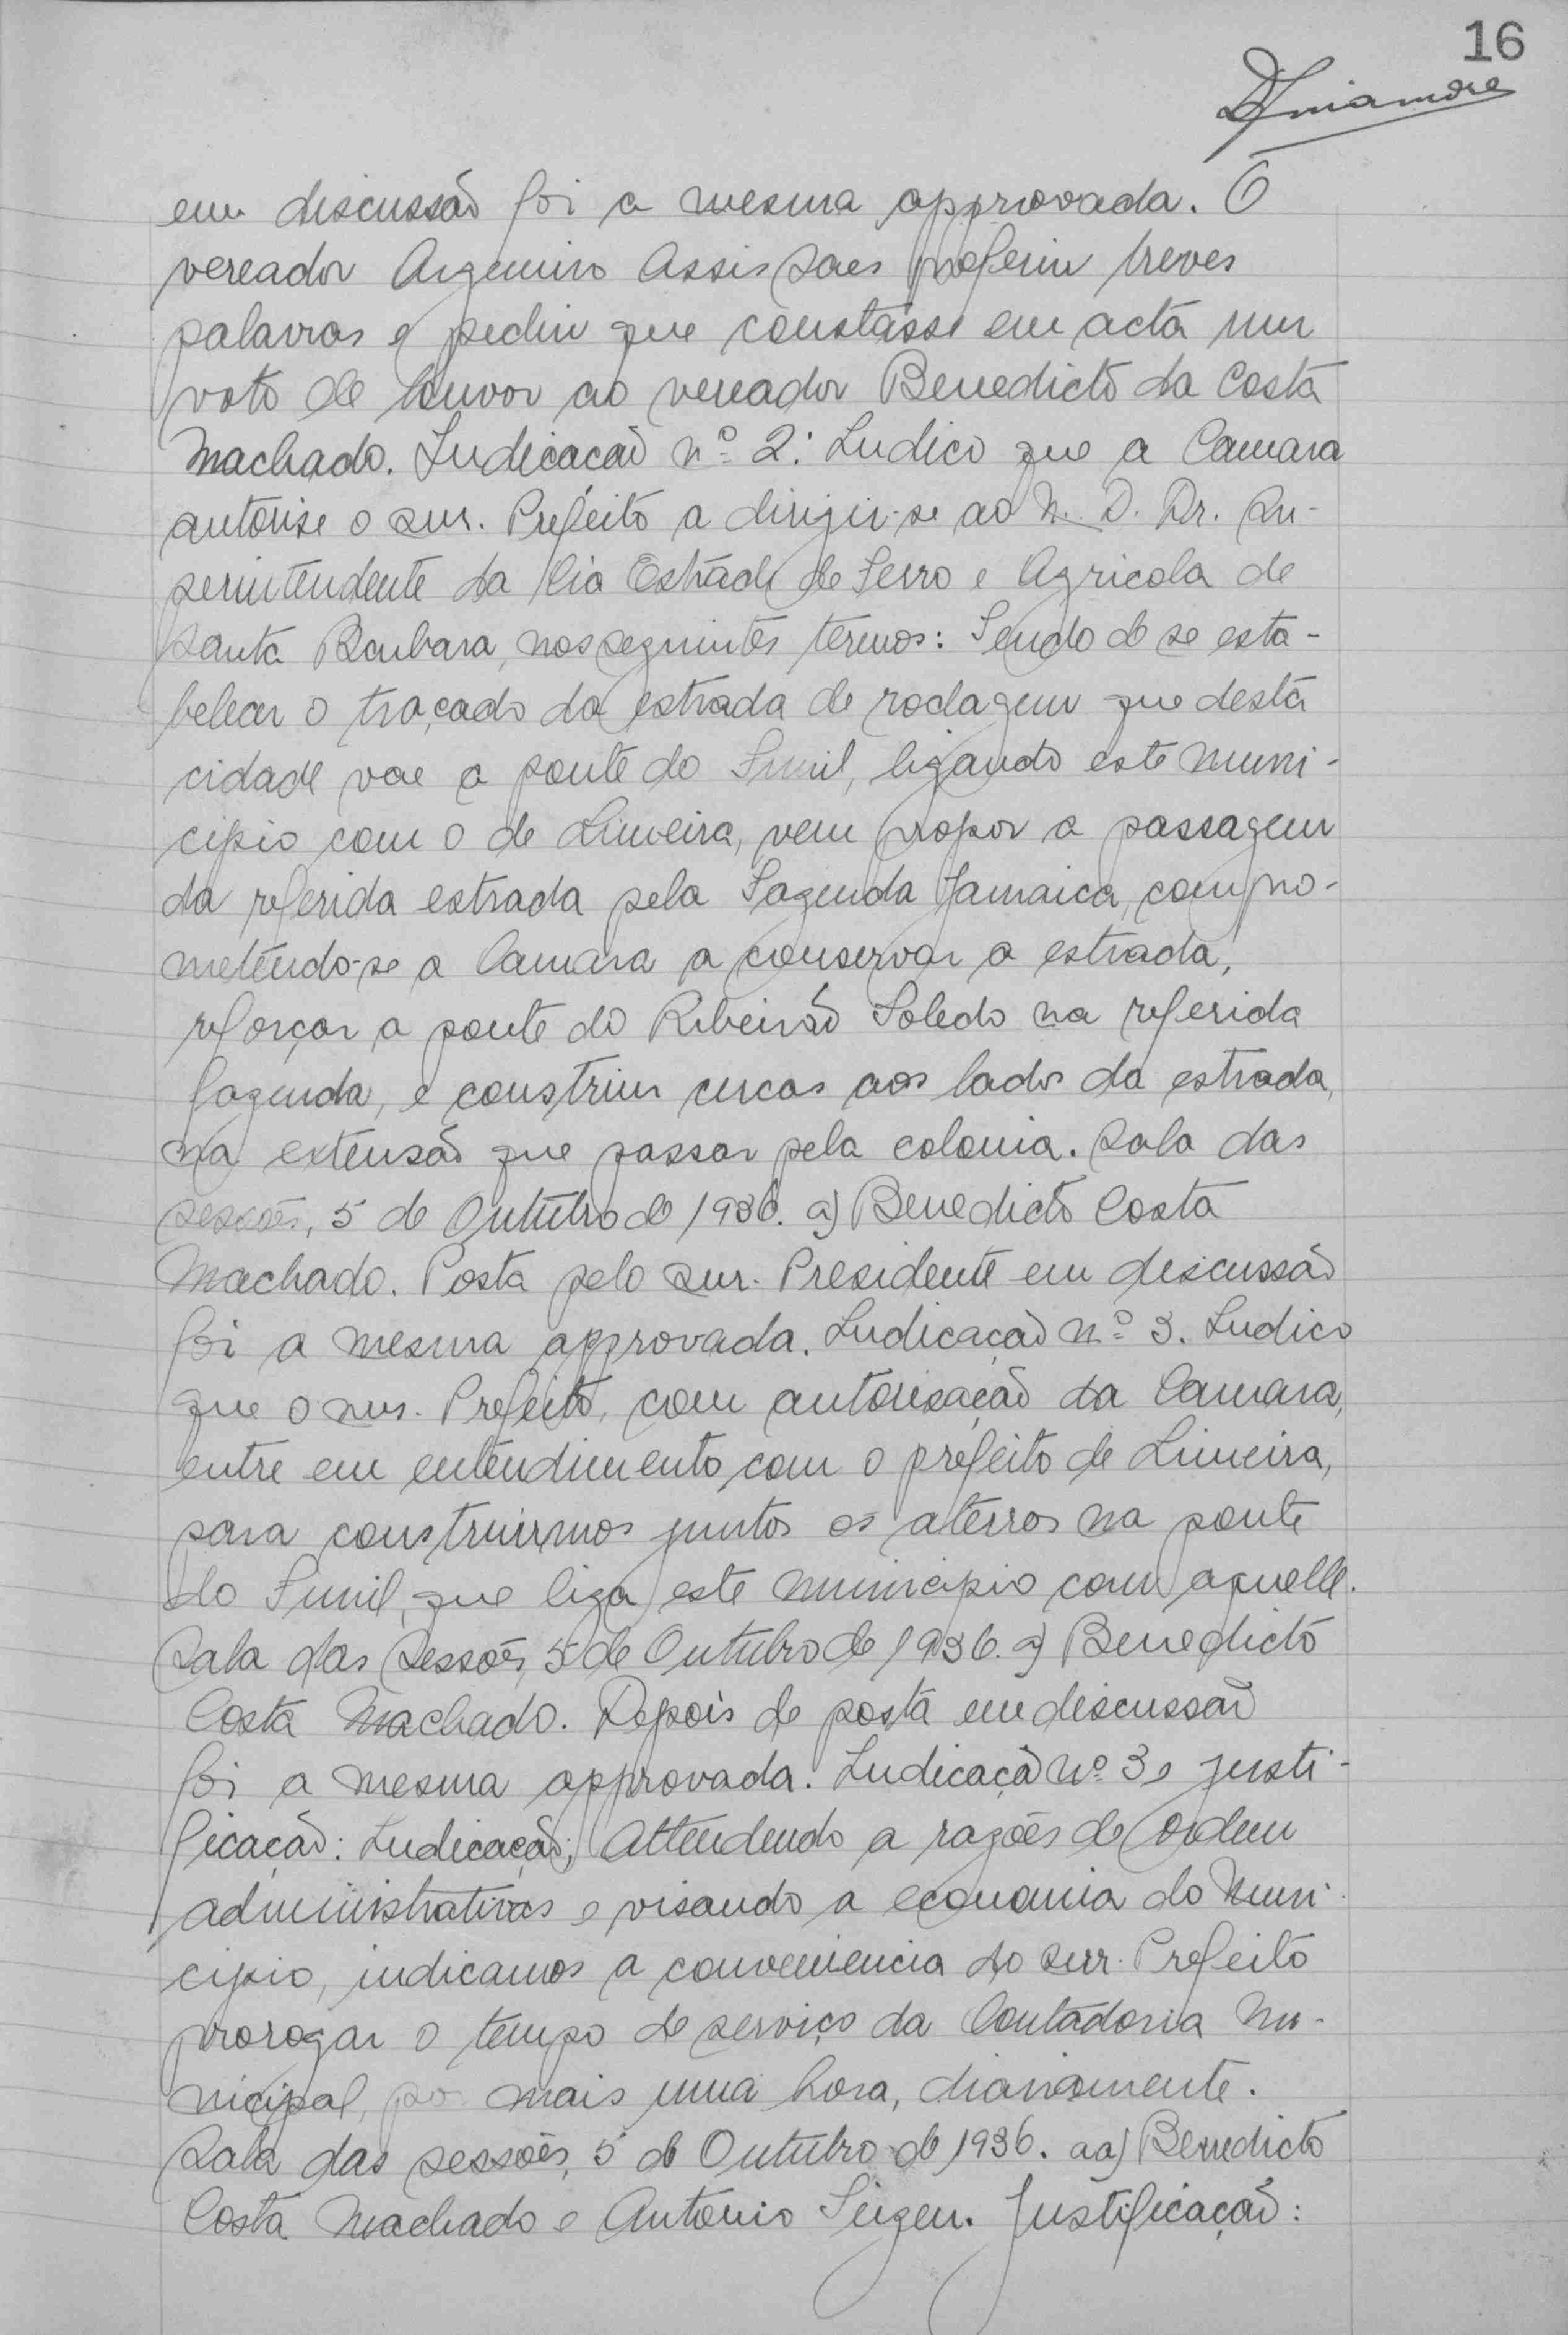 16
em discussão foi a mesma approvada. O
vereador Argemiro Assis Saes proferiu breves
palavras e pediu que constasse em acta um
voto de louvor ao vereador Benedicto da Costa
Machado. Indicação nº 2: Indico que a Camara
autorise o snr. Prefeito a dirigir-se ao M. D. Dr. Su-
perintendente da Cia Estrada de Ferro e Agricola de
Santa Barbara, nos seguintes termos: Tendo de se esta-
belecer o traçado da estrada de rodagem que desta
cidade vae a ponte do Funil, ligando este muni-
cipio com o de Limeira, vem propor a passagem
da referida estrada pela Fazenda Jamaica, compro-
metendo-se a Camara a conservar a estrada,
reforçar a ponte do Ribeirão Toledo na referida
fazenda, e construir cercas aos lados da estrada,
na extensão que passar pela colonia. Sala das
sessões, 5 de Outubro de 1936. a) Benedicto Costa
Machado. Posta pelo snr. Presidente em discussão
foi a mesma approvada. Indicação nº 3. Indico
que o snr. Prefeito, com autorisação da Camara,
entre em entendimento com o prefeito de Limeira,
para construirmos juntos os aterros na ponte
do Funil, que liga este municipio com aquelle.
Sala das Sessões, 5 de Outubro de 1936. a) Benedicto
Costa Machado. Depois de posta em discussão
foi a mesma approvada. Indicação nº 3 e justi-
ficação: Indicação; Attendendo a razões de ordem
administrativas e visando a economia do Muni-
cipio, indicamos a conveniencia do snr. Prefeito
prorogar o tempo de serviço da Contadoria Mu-
nicipal, por mais uma hora, diariamente.
Sala das sessões, 5 de Outubro de 1936. aa) Benedicto
Costa Machado e Antonio Justificação: